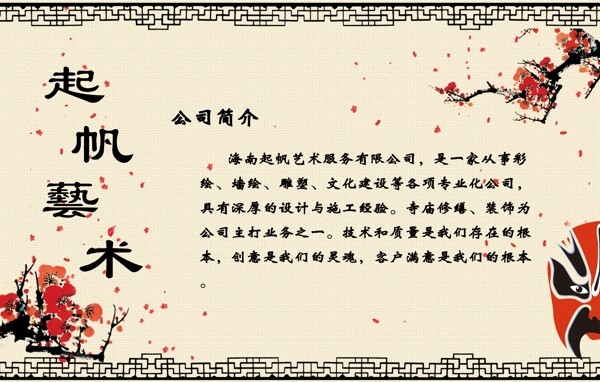 起帆藝术
公司简介
海南起帆艺术服务有限公司，是一家从事彩
绘、墙绘、雕塑、文化建设等各项专业化公司，
具有深厚的设计与施工经验。寺庙修缮、装饰为
公司主打业务之一。技术和质量是我们存在的根
本，创意是我们的灵魂，客户满意是我们的根本
。